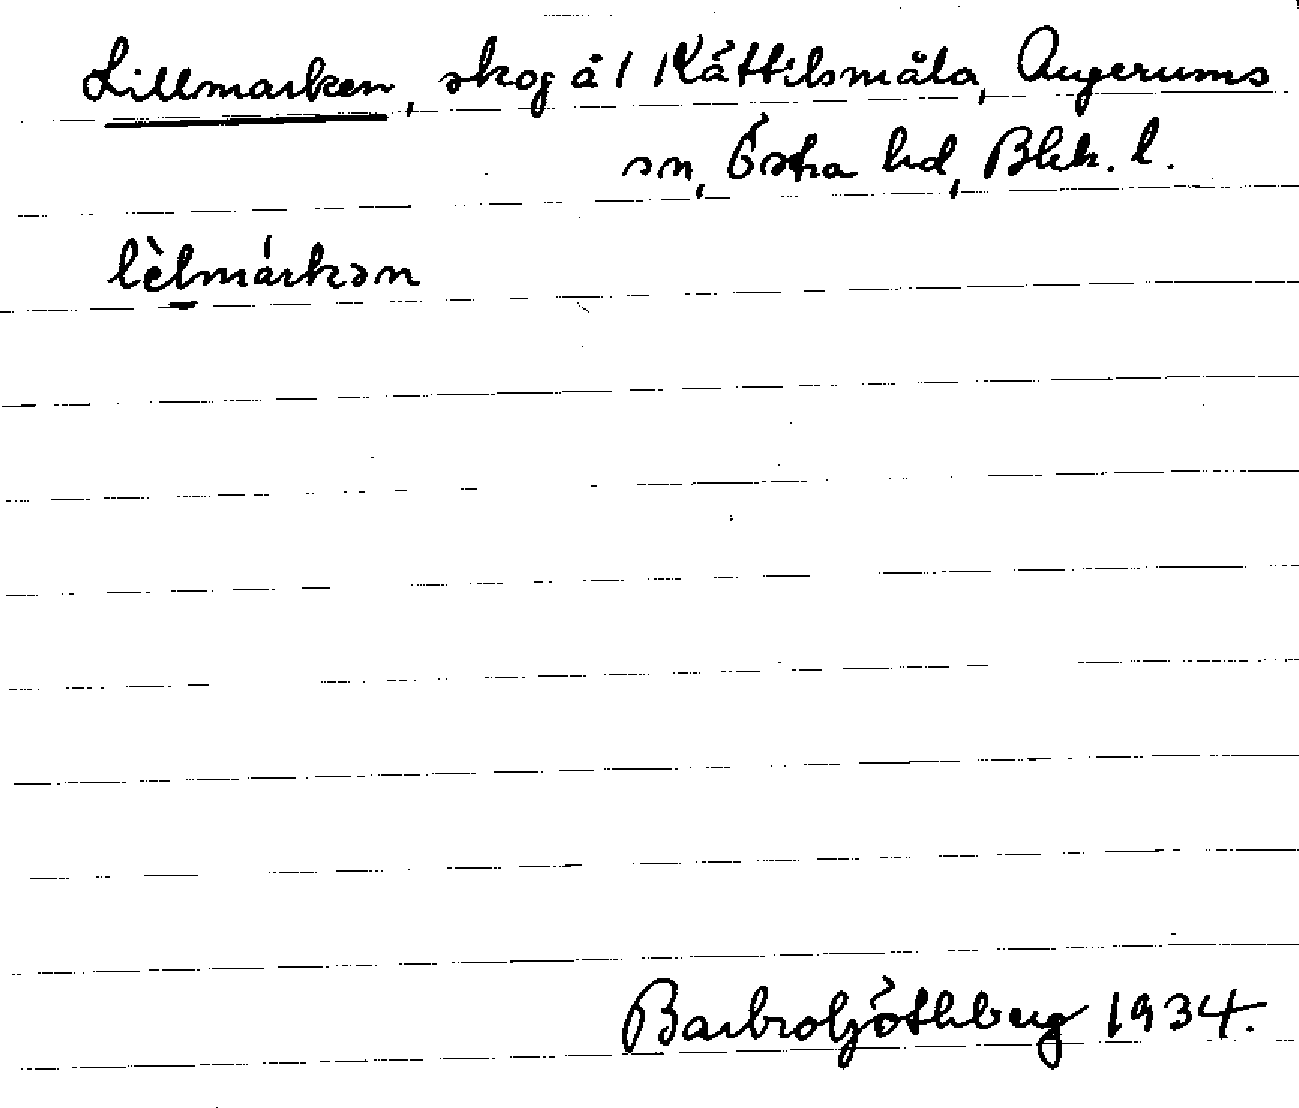 Lillmarken, skog å 1 Kättilsmåla, Augerums
sn, Östra hd, Blek. l.
lèlmárkən
Barbro Göthberg 1934.